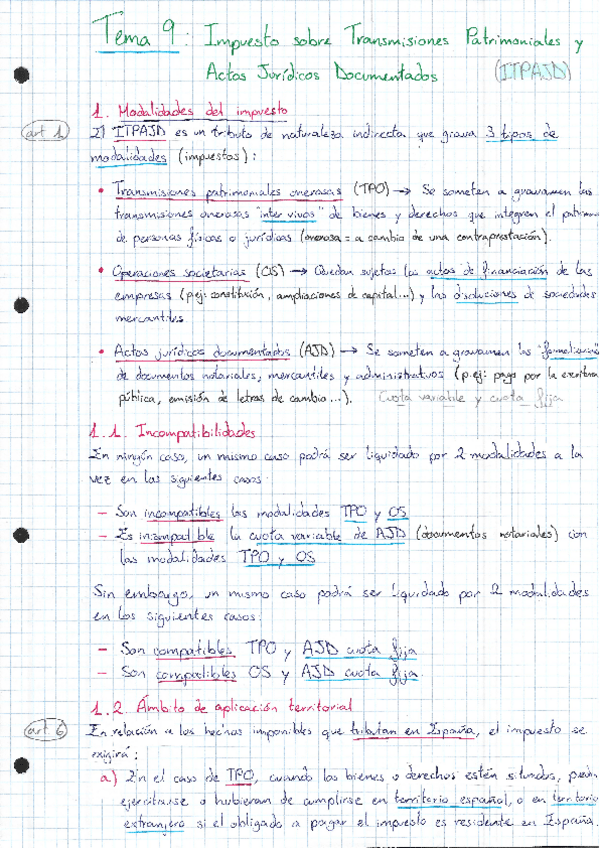 Tema 9: Impuesto sobre Transmisiones Patrimoniales y
Actos Jurídicos Documentados (ITPAJD)
1. Modalidades del impuesto
art 1
El ITPAJD es un tributo de naturaleza indirecta que grava 3 tipos de
modalidades (impuestos):
• Transmisiones patrimoniales onerosas (TPO) → Se someten a gravamen las
transmisiones onerosas "inter vivos" de bienes y derechos que integren el patrimon
de personas físicas o jurídicas (onerosa = a cambio de una contraprestación).
• Operaciones societarias (OS) → Quedan sujetas los actos de financiación de las
empresas (p.ej: constitución, ampliaciones de capital...) y las disoluciones de sociedades
mercantiles
• Actos jurídicos documentados (AJD) → Se someten a gravamen las "formalizacion
de documentos notariales, mercantiles y administrativos (p.ej: pago por la escritura
pública, emisión de letras de cambio...). Cuota variable y cuota fija
1.1. Incompatibilidades
En ningún caso, un mismo caso podrá ser liquidado por 2 modalidades a la
vez en los siguientes casos:
- Son incompatibles las modalidades TPO y OS
- Es incompatible la cuota variable de AJD (documentos notariales) con
las modalidades TPO y OS
Sin embargo, un mismo caso podrá ser liquidado por 2 modalidades
en los siguientes casos:
- Son compatibles TPO y AJD cuota fija
- Son compatibles OS y AJD cuota fija.
1.2. Ámbito de aplicación territorial
art 6
En relación a los hechos imponibles que tributan en España, el impuesto se
exigirá:
a) En el caso de TPO, cuando los bienes o derechos estén situados, puedan
ejercitarse o hubieran de cumplirse en territorio español, o en territorio
extranjero si el obligado a pagar el impuesto es residente en España.